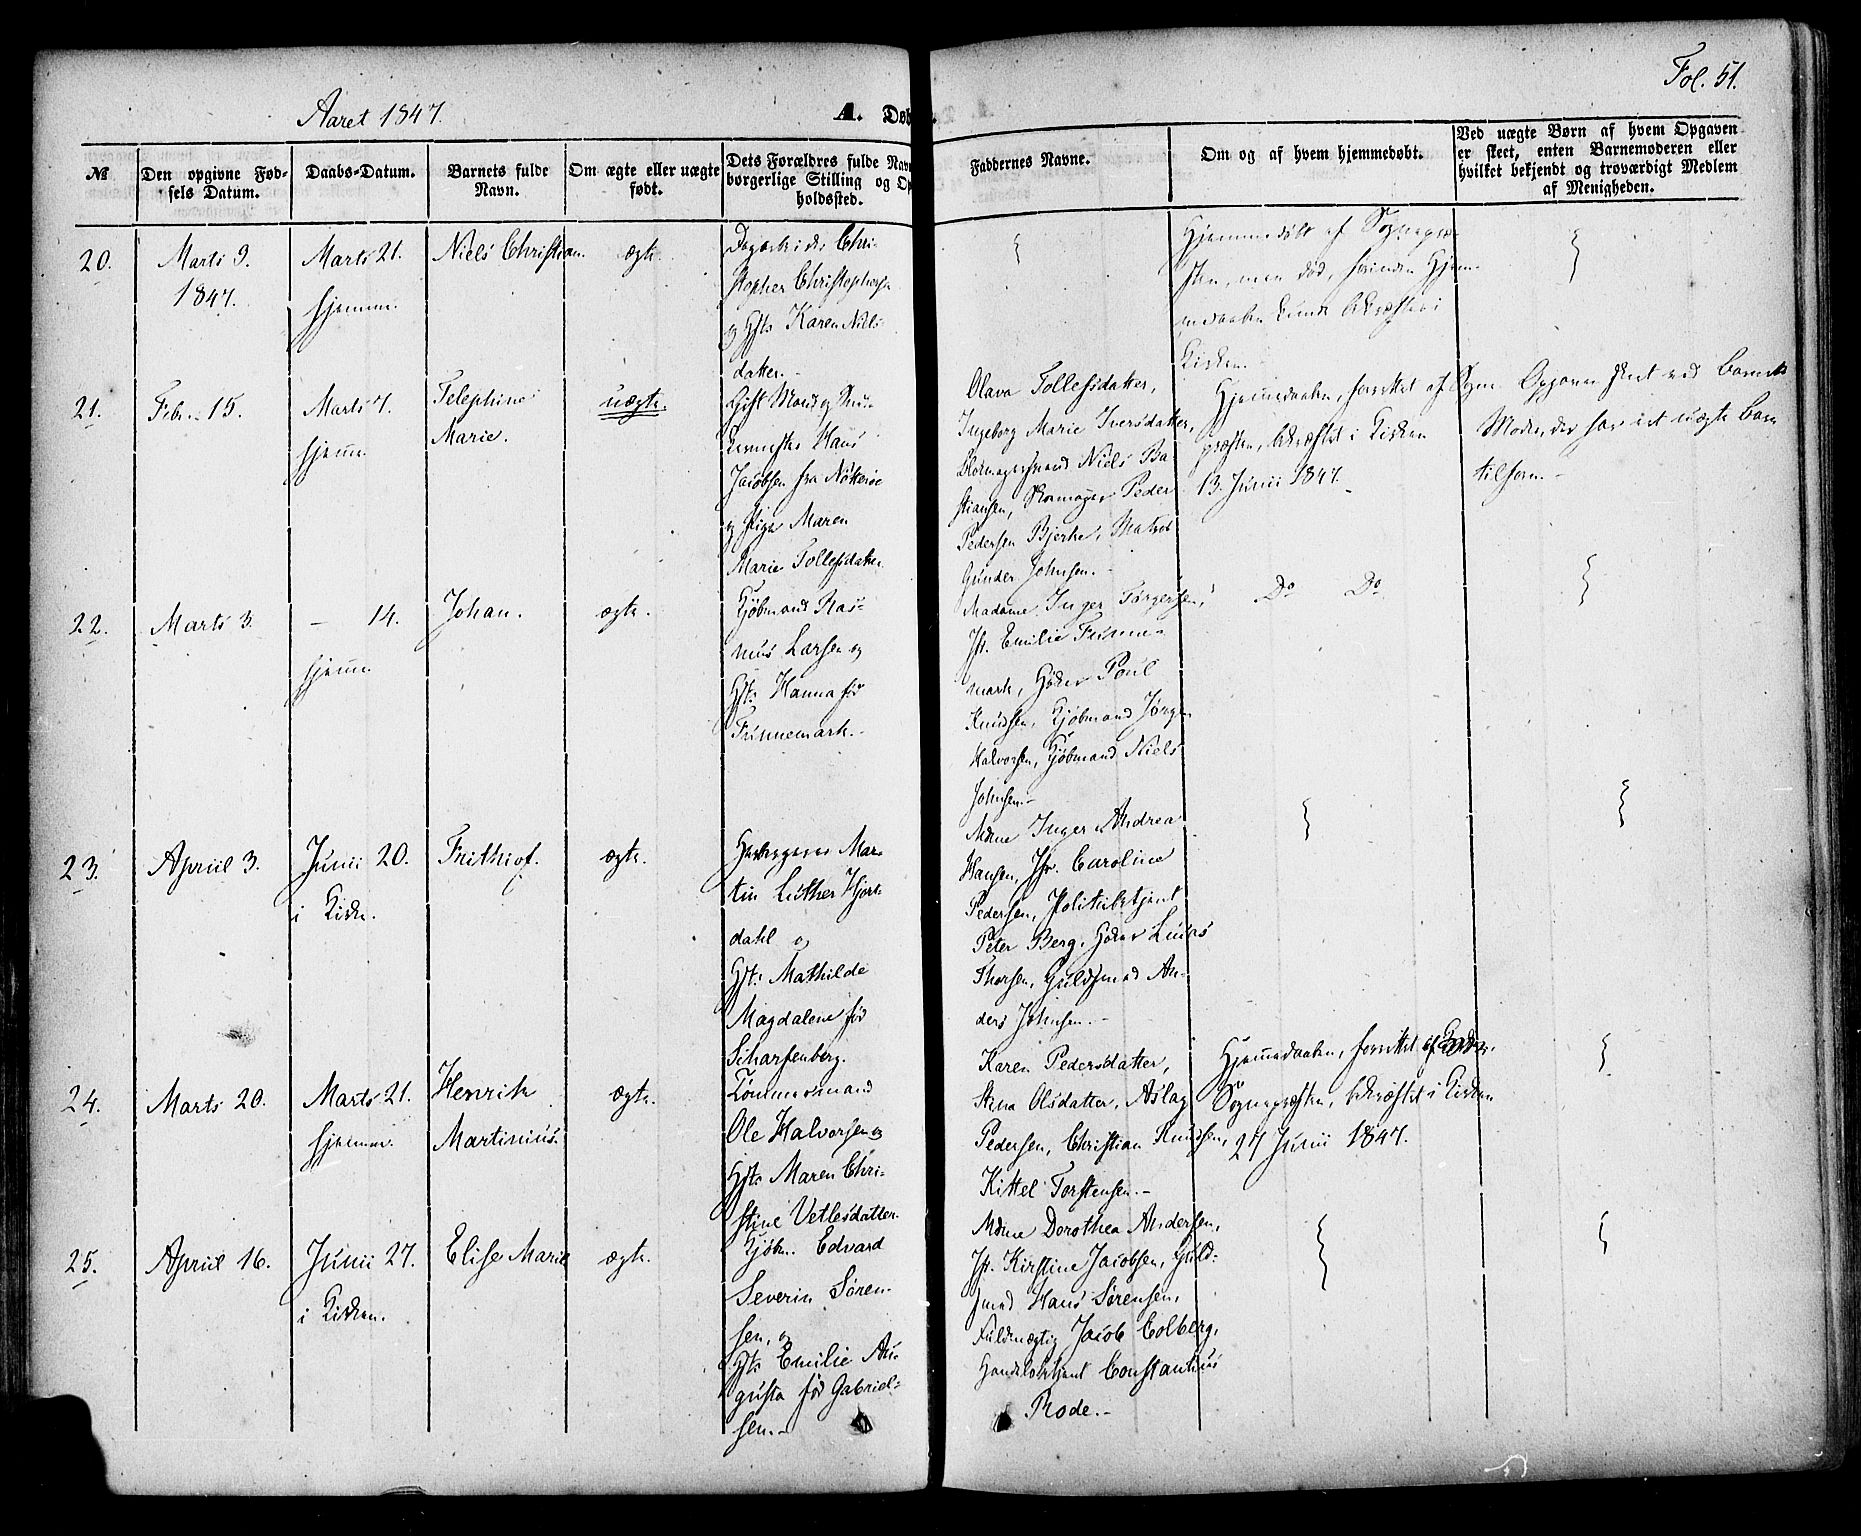 Fol. 51.
Aaret 1847.
A. Døb
№
Den opgivne Fød-
sels Datum.
Daabs-Datum.
Barnets fulde
Navn.
Om ægte eller uægte
født.
Dets Forældres fulde Nav
borgerlige Stilling og Op
holdssted.
Faddernes Navne.
Om og af hvem hjemmedøbt.
Ved uægte Børn af hvem Opgaven
er skeet, enten Barnemoderen eller
hvilket bekjendt og troværdigt Medlem
af Menigheden.
20.
Marts 9.
1847.
Marts 21.
hjemme.
Niels Christian.
ægte
Dagarbeider Chri-
stopher Christophersen
og Hst. Karen Niels-
datter.-
Hjemmedøbt af Sognepræ-
sten, men død, førinden Hjem-
medaaben kunde bekræftes i
Kirken.
21.
Febr. 15.
Marts 7.
hjemme
Telephine
Marie.
uægte.
Gift Mand og
Hans
Jacobsen fra Nötteröe
og Pige Maren
Marie Tollefsdatter
Olava Tollefsdatter,
Ingeborg Marie Iversdatter,
Niels Ba-
stiansen, Skomager Peder
Pedersen Bjerke, Matros
Gunder Johnsen.-
Hjemmedaaben, forrettet af Sogne-
præsten, bekræftet i Kirken
13. Junii 1847.
Opgaven skeet ved Barnets
Moder, der har et uægte Barn
tilforn.-
22.
Marts 3.
- 14.
hjemme
Johan.
ægte.
Kjöbmand Ras-
mus Larsen og
Hst. Hanna fød
Trinnemark.-
Madame Inger Törgersen,
Jfr. Emilie Trinne-
mark, Poul
Knudsen, Kjöbmand Jörgen
Halvorsen, Kjöbmand Niels
Johnsen.-
Do Do
23.
Apriil 3.
Junii 20.
i Kirken.
Frithiof.
ægte.
Mar-
tin Luther Hjort-
dahl og
Hst. Mathilde
Magdalene fød
Scharfenberg.
Mdme Inger Andrea
Hansen, Jfr. Caroline
Pedersen, Politibetjent
Peter Berg, Lucas
Thorsen, Guldsmed An-
ders Johnsen.-
24.
Marts 20.
Marts 21.
hjemme.
Henrik
Martinius.
ægte.
Tömmermand
Ole Halvorsen og
Hst. Maren Chri-
stine Vetlesdatter.
Karen Pedersdatter,
Stina Olsdatter, Aslag
Pedersen, Christian Knudsen,
Kittel Torstensen.-
Hjemmedaaben, forrettet af
Sognepræsten, bekræftet i Kirken
27 Junii 1847.
25.
Apriil 16.
Junii 27.
i Kirken.
Elise Marie
ægte.
Kjöbm. Edvard
Severin Sören-
sen, og
Hst. Emilie Au-
gusta fød Gabriel-
sen.-
Mdme Dorothea Andersen,
Jfr. Kirstine Jacobsen, Guld-
smed Hans Sörensen,
Fuldmægtig Jacob Colberg,
Handelsbetjent Constantius
Rode.-